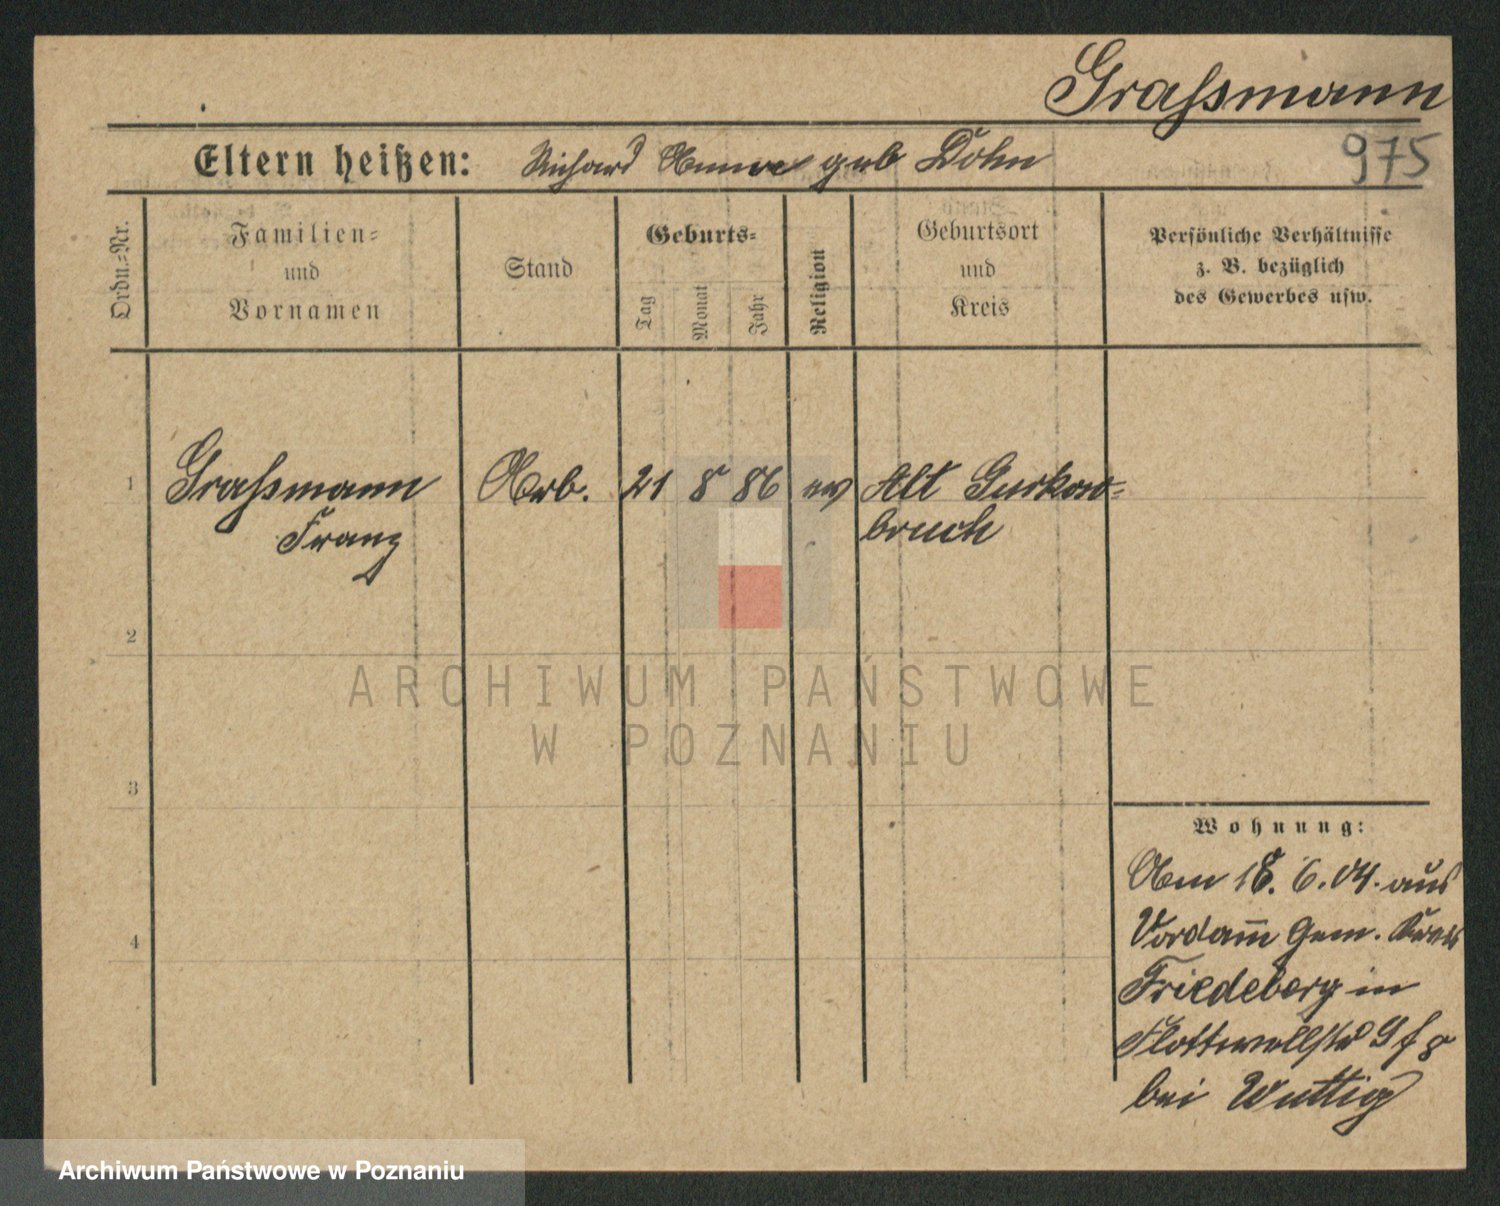 Graſsmann
975
Eltern heißen: Richard Anna geb Dohn
Ordn.-Nr.
Familien-
und
Vornamen
Stand
Geburts-
Tag
Monat
Jahr
Religion
Geburtsort
und
Kreis
Persönliche Verhältnisse
z. B. bezüglich
des Gewerbes usw.
1 Graſsmann Arb. 21 8 86 ev Alt Gurkow-
Franz bruch
2
3
4
Wohnung:
Am 18. 6. 04. aus
Vordam̅ Gem. Kreis
Friedeberg in
Flottwellstr
bei Wuttig
ARCHIWUM PAŃSTWOWE
W POZNANIU
Archiwum Państwowe w Poznaniu